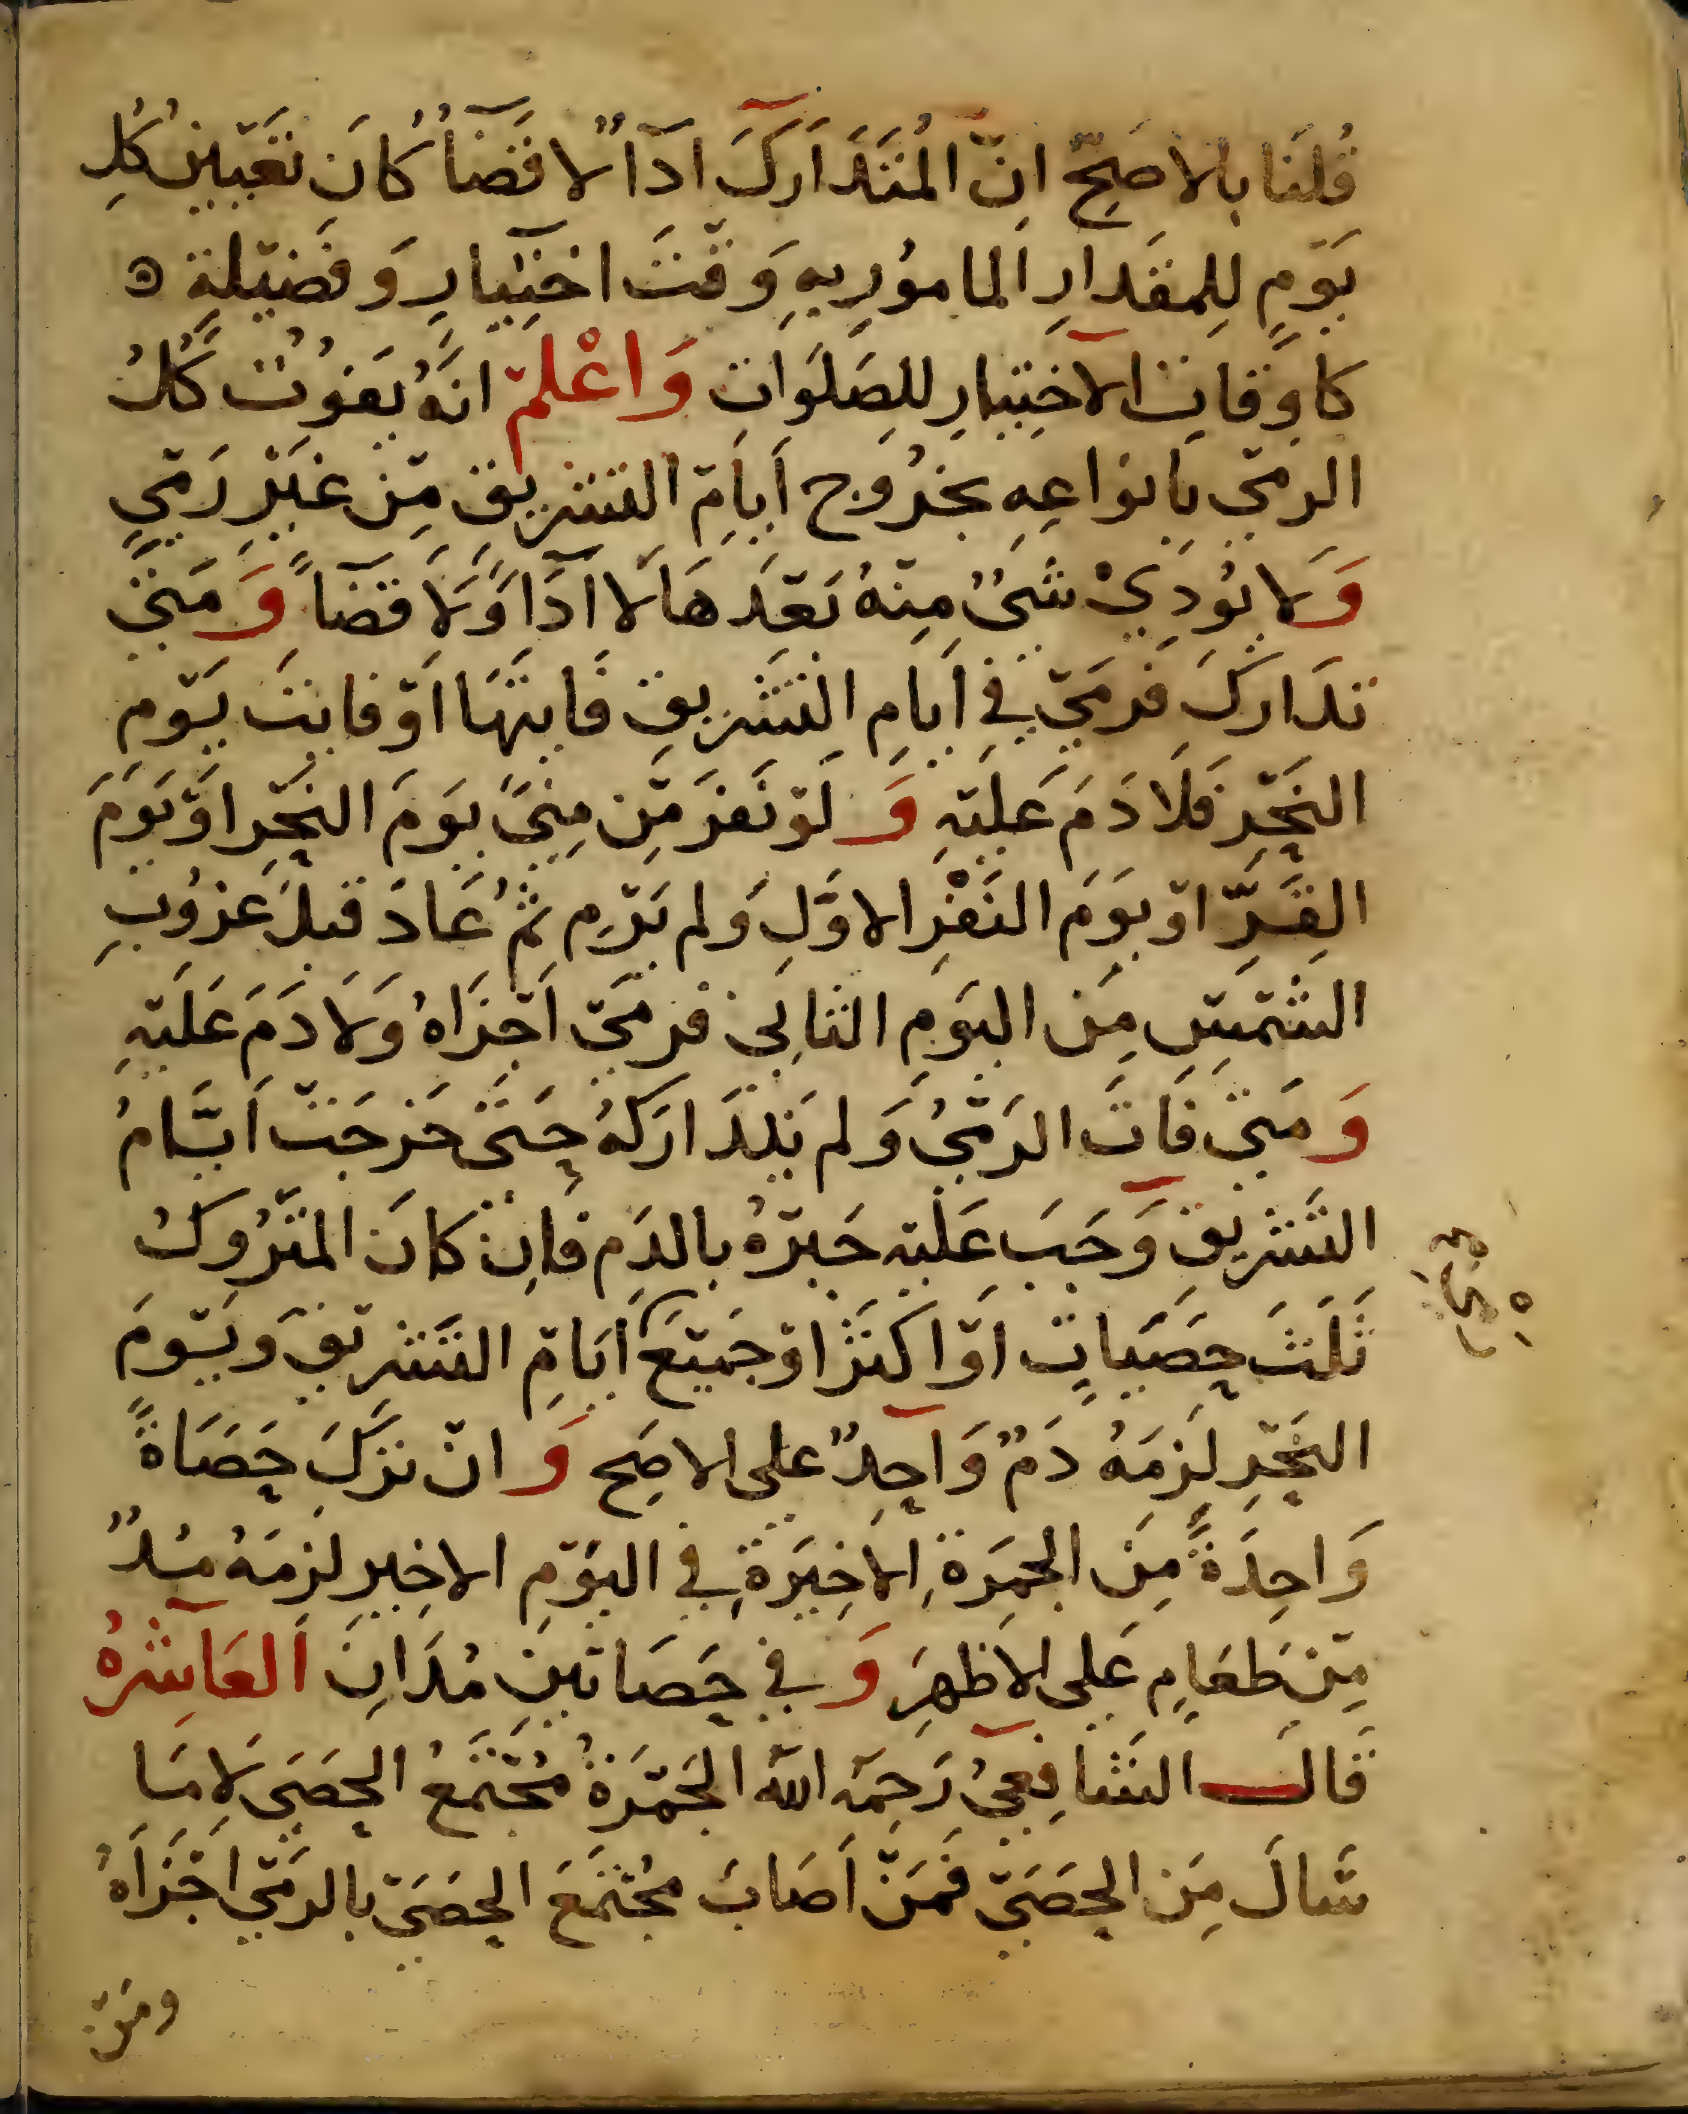 قُلنَا بالاصَحّ انّ المُتَدَارَكَ ادآءٌ لا قضآءٌ كانَ تعَيينُ كُلِ
يَومٍ لِلمقدَارِ المامُورِ بهِ وَقتَ اختيارٍ وَفضيلةٍ ه
كاوقاتِ الاختيارِ للصَلَوَاتِ وَاعْلم انهُ يَفوُتُ كُلُ
الرمي بَانواعِهِ بخرُوج أيامِ التشريق مِن غيرِ رَميٍ
وَلا يُودَيْ شَيٌ مِنهُ بَعدَهَا لا ادَآءً وَلا قضآءً وَمتى
تدَاركَ فرَمي في ايامِ التشريقِ فايتهَا او فايتَ يَومِ
النحرِ فلا دَمَ عَليهِ وَلو نفرَ مِن مِنيً يومَ النحرِ او يَومَ
القرِّ او يومَ النفرِ الاوَّلِ وَلم يَرمِ ثمُ عَادَ قبلَ غرُوبِ
الشمسِ مِن اليومِ الثانِي فرمَي اجزَاهُ وَلا دَمَ عَليهِ
وَمتى فاتَ الرَميُ وَلم يَتدَارَكهُ حَتى خرجَت ايّامُ
التشريقِ وَجَبَ عَليهِ جَبرُهُ بالدَمِ فاِن كانَ المترُوكُ
ثلثَ حصَيَاتٍ او اكثرَ او جميعَ ايامِ التشريق وَيَومَ
النحرِ لزِمَهُ دَمٌ وَاحِدٌ على الاصَح وَان تركَ حصَاةً
وَاحِدَةً مِن الجمرَةِ الاخِيرَةِ في اليومِ الاخِيرِ لزمَهُ مُدٌ
مِن طعَامٍ عَلى الاظهرِ وَفي حصَاتينِ مُدَانِ العَاشرَهُ
قالـــ الشافعيُ رَحمَه الله الجمرَةُ مُجتمَعُ الحصَى لا مَا
سَالَ مِن الحصَى فمَن اصَابَ مُجتمَعَ الحصَى بالرَمي اجزَاهُ
ومَن